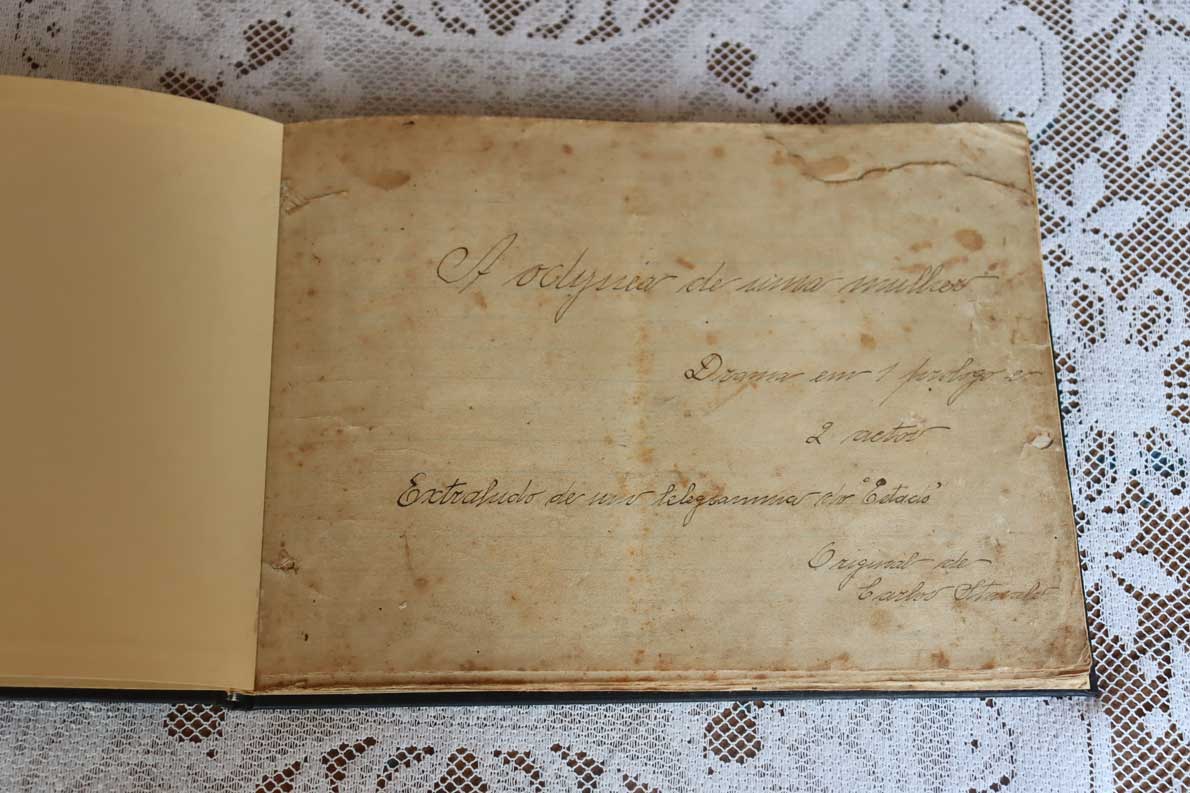 A odynéa de uma mulher
Drama em 1 prologo e
2 actos
Extrahido de um telegramma do "Estado"
Original de
Carlos